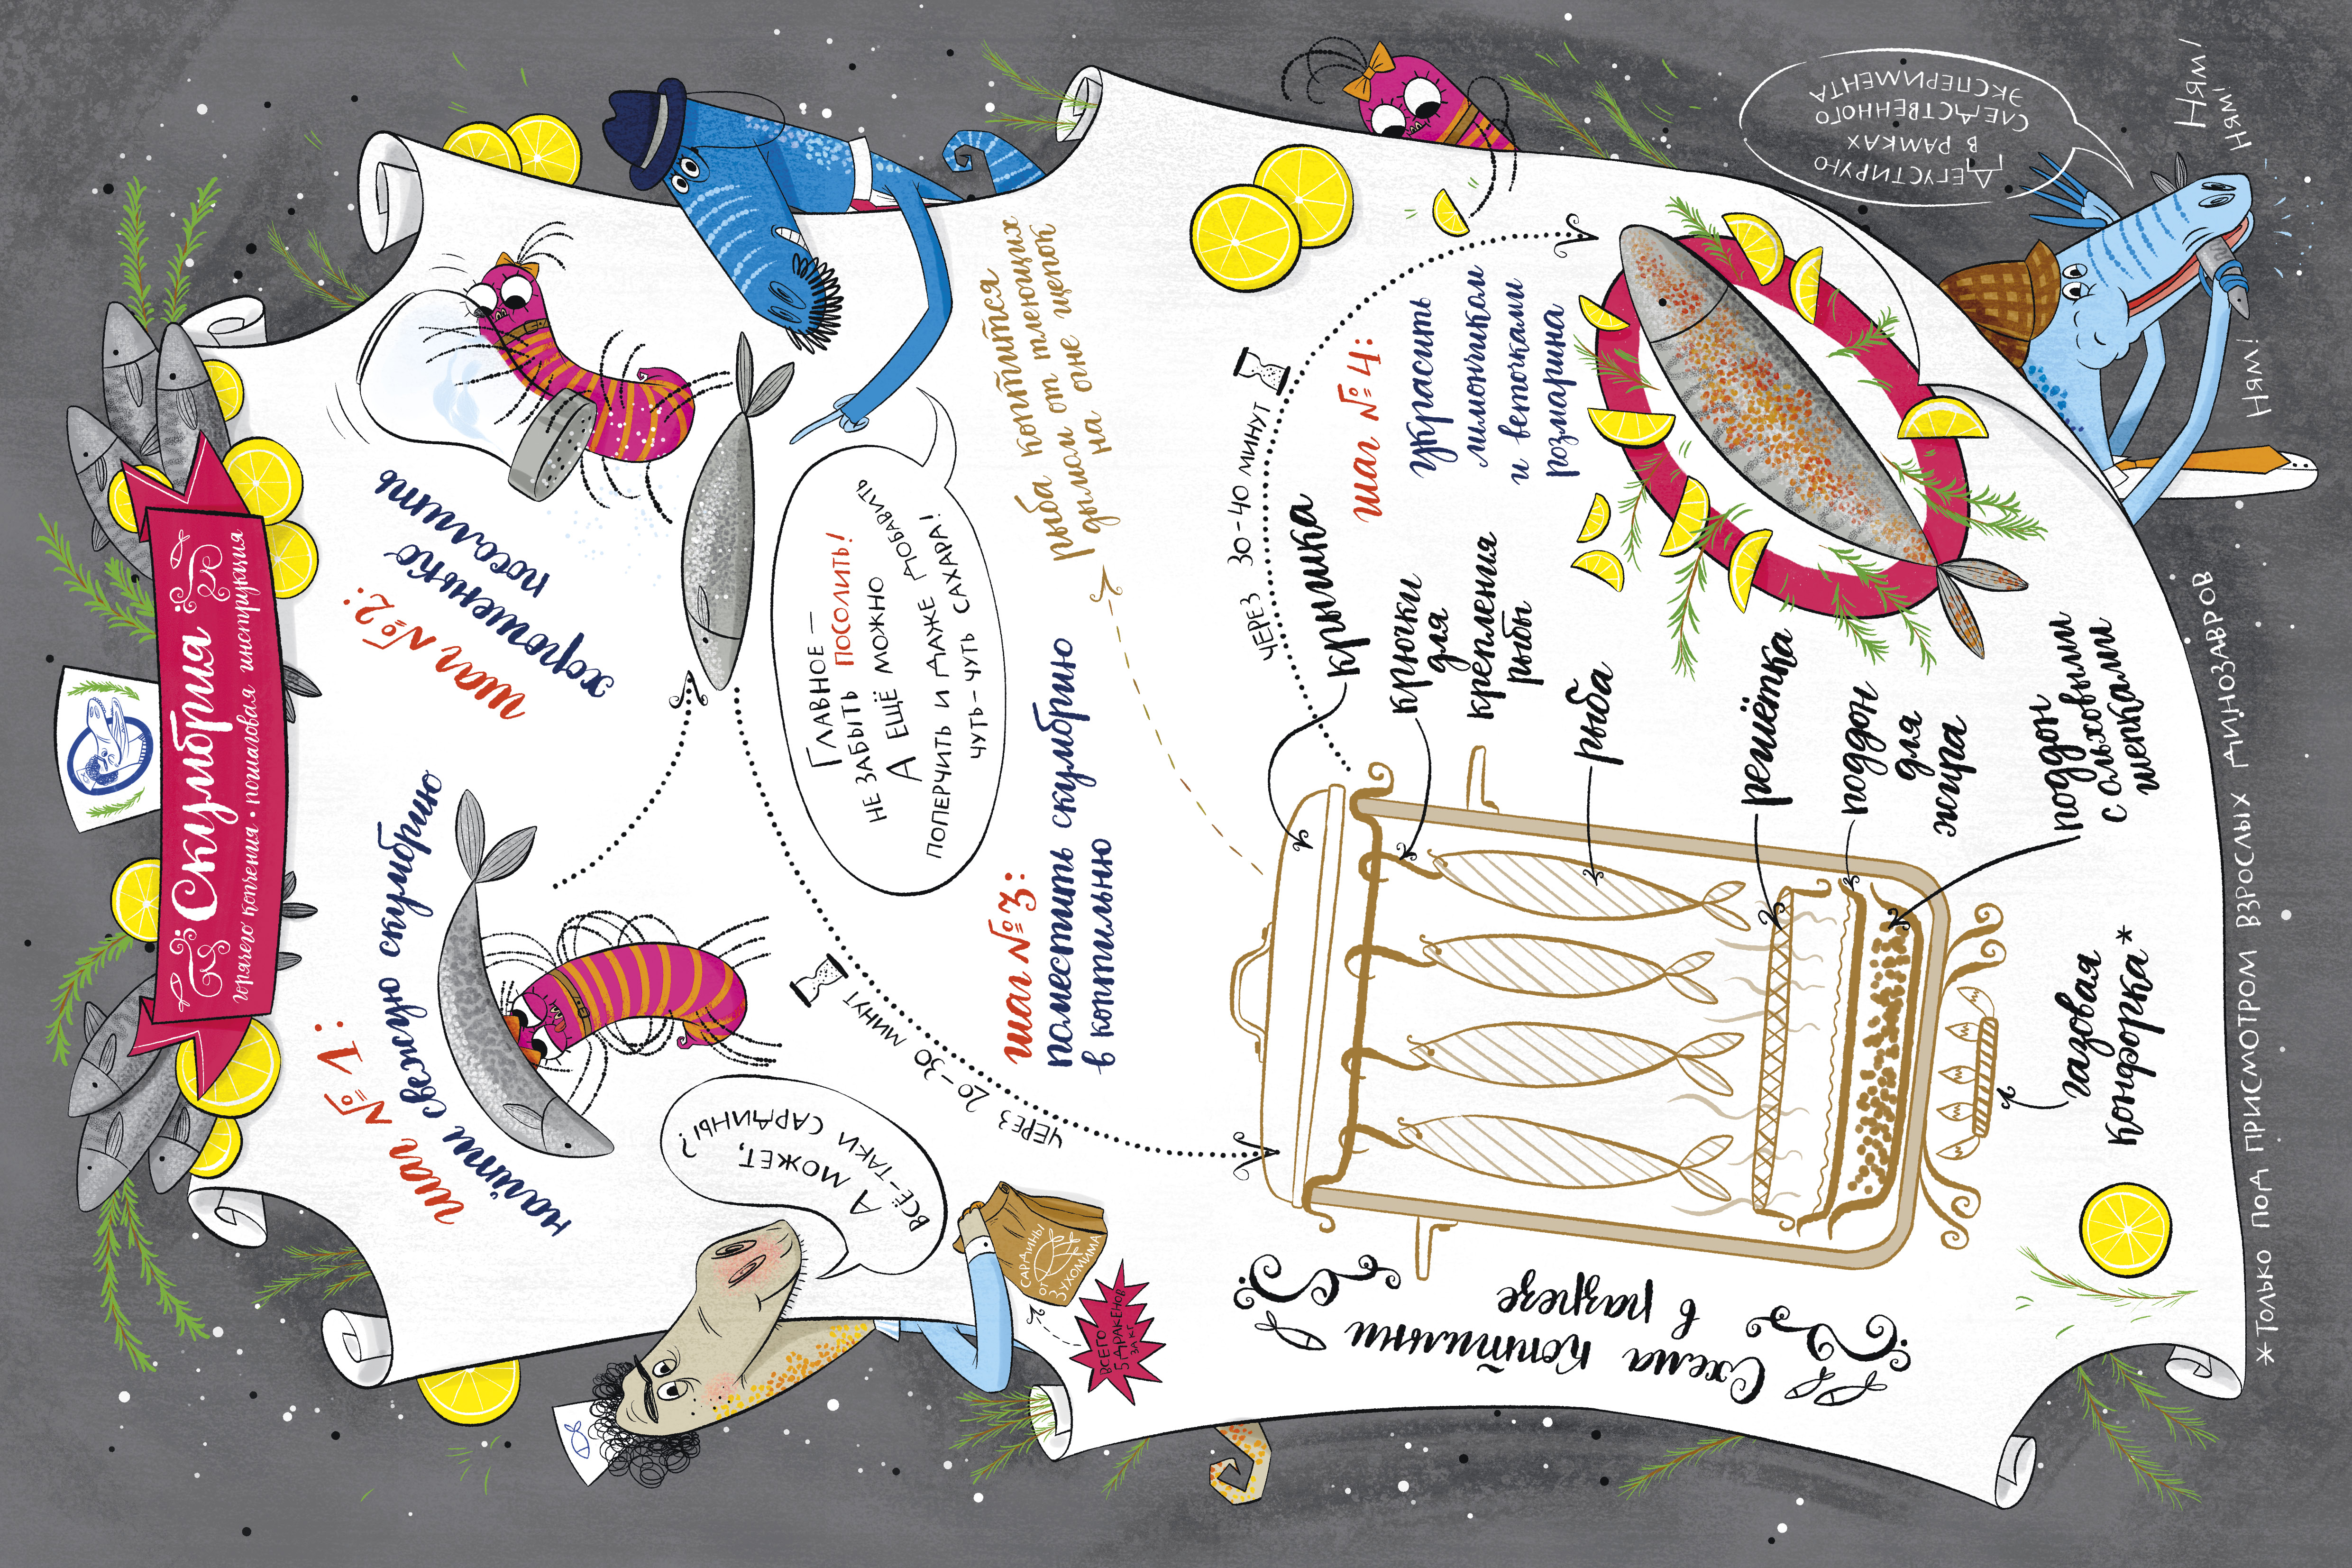 Скумбрия
горячего копчения · пошаговая инструкция
шаг №1:
найти свежую скумбрию
шаг №2:
хорошенько
посолить
А может,
всё-таки сардины?
сардины
от
Зухомима
всего
5 дракенов
за кг
Главное —
не забыть посолить!
А ещё можно
поперчить и даже добавить
чуть-чуть сахара!
через 20-30 минут
шаг №3:
поместить скумбрию
в коптильню
рыба коптится
дымом от тлеющих
на огне щепок
Схема коптильни
в разрезе
крышка
крючки
для
крепления
рыбы
рыба
решётка
поддон
для
жира
поддон
с ольховыми
щепками
газовая
конфорка*
через 30-40 минут
шаг №4:
украсить
лимончиком
и веточками
розмарина
Дегустирую
в рамках
следственного
эксперимента
Ням!
Ням!
Ням!
*Только под присмотром взрослых динозавров